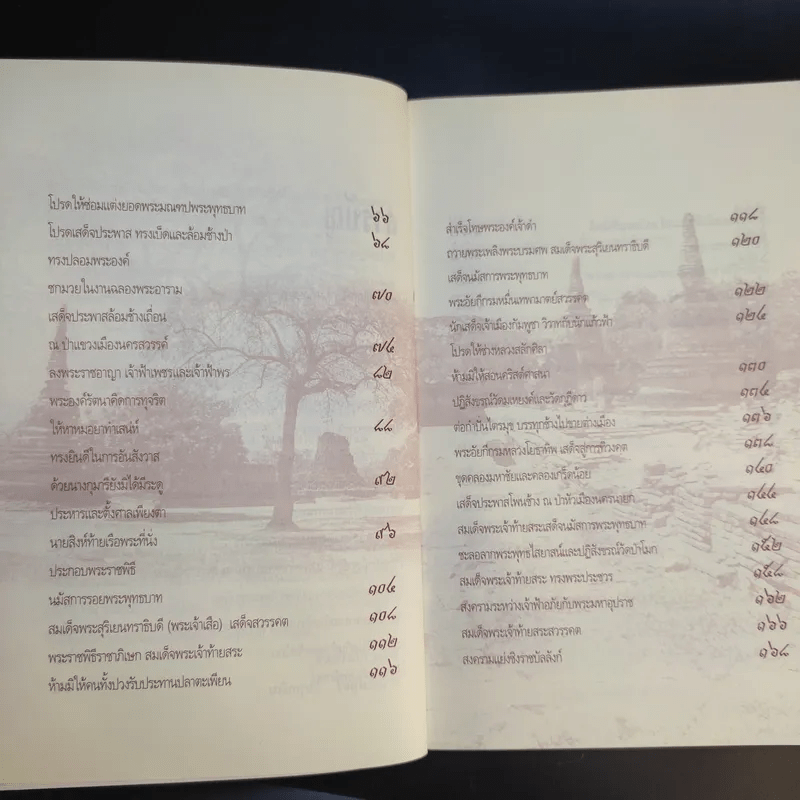 โปรดให้ซ่อมแต่งยอดพระมณฑปพระพุทธบาท ๖๖
โปรดเสด็จประพาส ทรงเบ็ดและล้อมช้างป่า ๖๘
ทรงปลอมพระองค์
ชกมวยในงานฉลองพระอาราม ๗๐
เสด็จประพาสล้อมช้างเถื่อน
ณ ป่าแขวงเมืองนครสวรรค์ ๗๔
ลงพระราชอาญา เจ้าฟ้าเพชรและเจ้าฟ้าพร ๘๒
พระองค์รัตนาคิดการทุจริต
ให้หาหมอยาทำเสน่ห์ ๘๘
ทรงยินดีในการอันสังวาส
ด้วยนางกุมารียังมิได้มีระดู ๙๒
ประหารและตั้งศาลเพียงตา
นายสิงห์ท้ายเรือพระที่นั่ง ๙๖
ประกอบพระราชพิธี
นมัสการรอยพระพุทธบาท ๑๐๔
สมเด็จพระสุริเยนทราธิบดี (พระเจ้าเสือ) เสด็จสวรรคต ๑๐๘
พระราชพิธีราชาภิเษก สมเด็จพระเจ้าท้ายสระ ๑๑๒
ห้ามมิให้คนทั้งปวงรับประทานปลาตะเพียน ๑๑๖
สำเร็จโทษพระองค์เจ้าดำ ๑๑๘
ถวายพระเพลิงพระบรมศพ สมเด็จพระสุริเยนทราธิบดี ๑๒๐
เสด็จนมัสการพระพุทธบาท
พระอัยกีกรมหมื่นเทพามาตย์สวรรคต ๑๒๒
นักเสด็จเจ้าเมืองกัมพูชา วิวาทกับนักแก้วฟ้า ๑๒๔
โปรดให้ช่างหลวงสลักศิลา
ห้ามมิให้สอนคริสต์ศาสนา ๑๓๐
ปฏิสังขรณ์วัดมเหยงค์และวัดกุฎีดาว ๑๓๔
ต่อกำปั่นไตรมุข บรรทุกช้างไปขายต่างเมือง ๑๓๖
พระอัยกีกรมหลวงโยธาทิพ เสด็จสู่การทิวงคต ๑๓๘
ขุดคลองมหาชัยและคลองเกร็ดน้อย ๑๔๐
เสด็จประพาสโพนช้าง ณ ป่าหัวเมืองนครนายก ๑๔๔
สมเด็จพระเจ้าท้ายสระเสด็จนมัสการพระพุทธบาท ๑๔๘
ชะลอลากพระพุทธไสยาสน์และปฏิสังขรณ์วัดป่าโมก ๑๕๒
สมเด็จพระเจ้าท้ายสระ ทรงพระประชวร ๑๕๘
สงครามระหว่างเจ้าฟ้าอภัยกับพระมหาอุปราช ๑๖๒
สมเด็จพระเจ้าท้ายสระสวรรคต ๑๖๖
สงครามแย่งชิงราชบัลลังก์ ๑๖๘